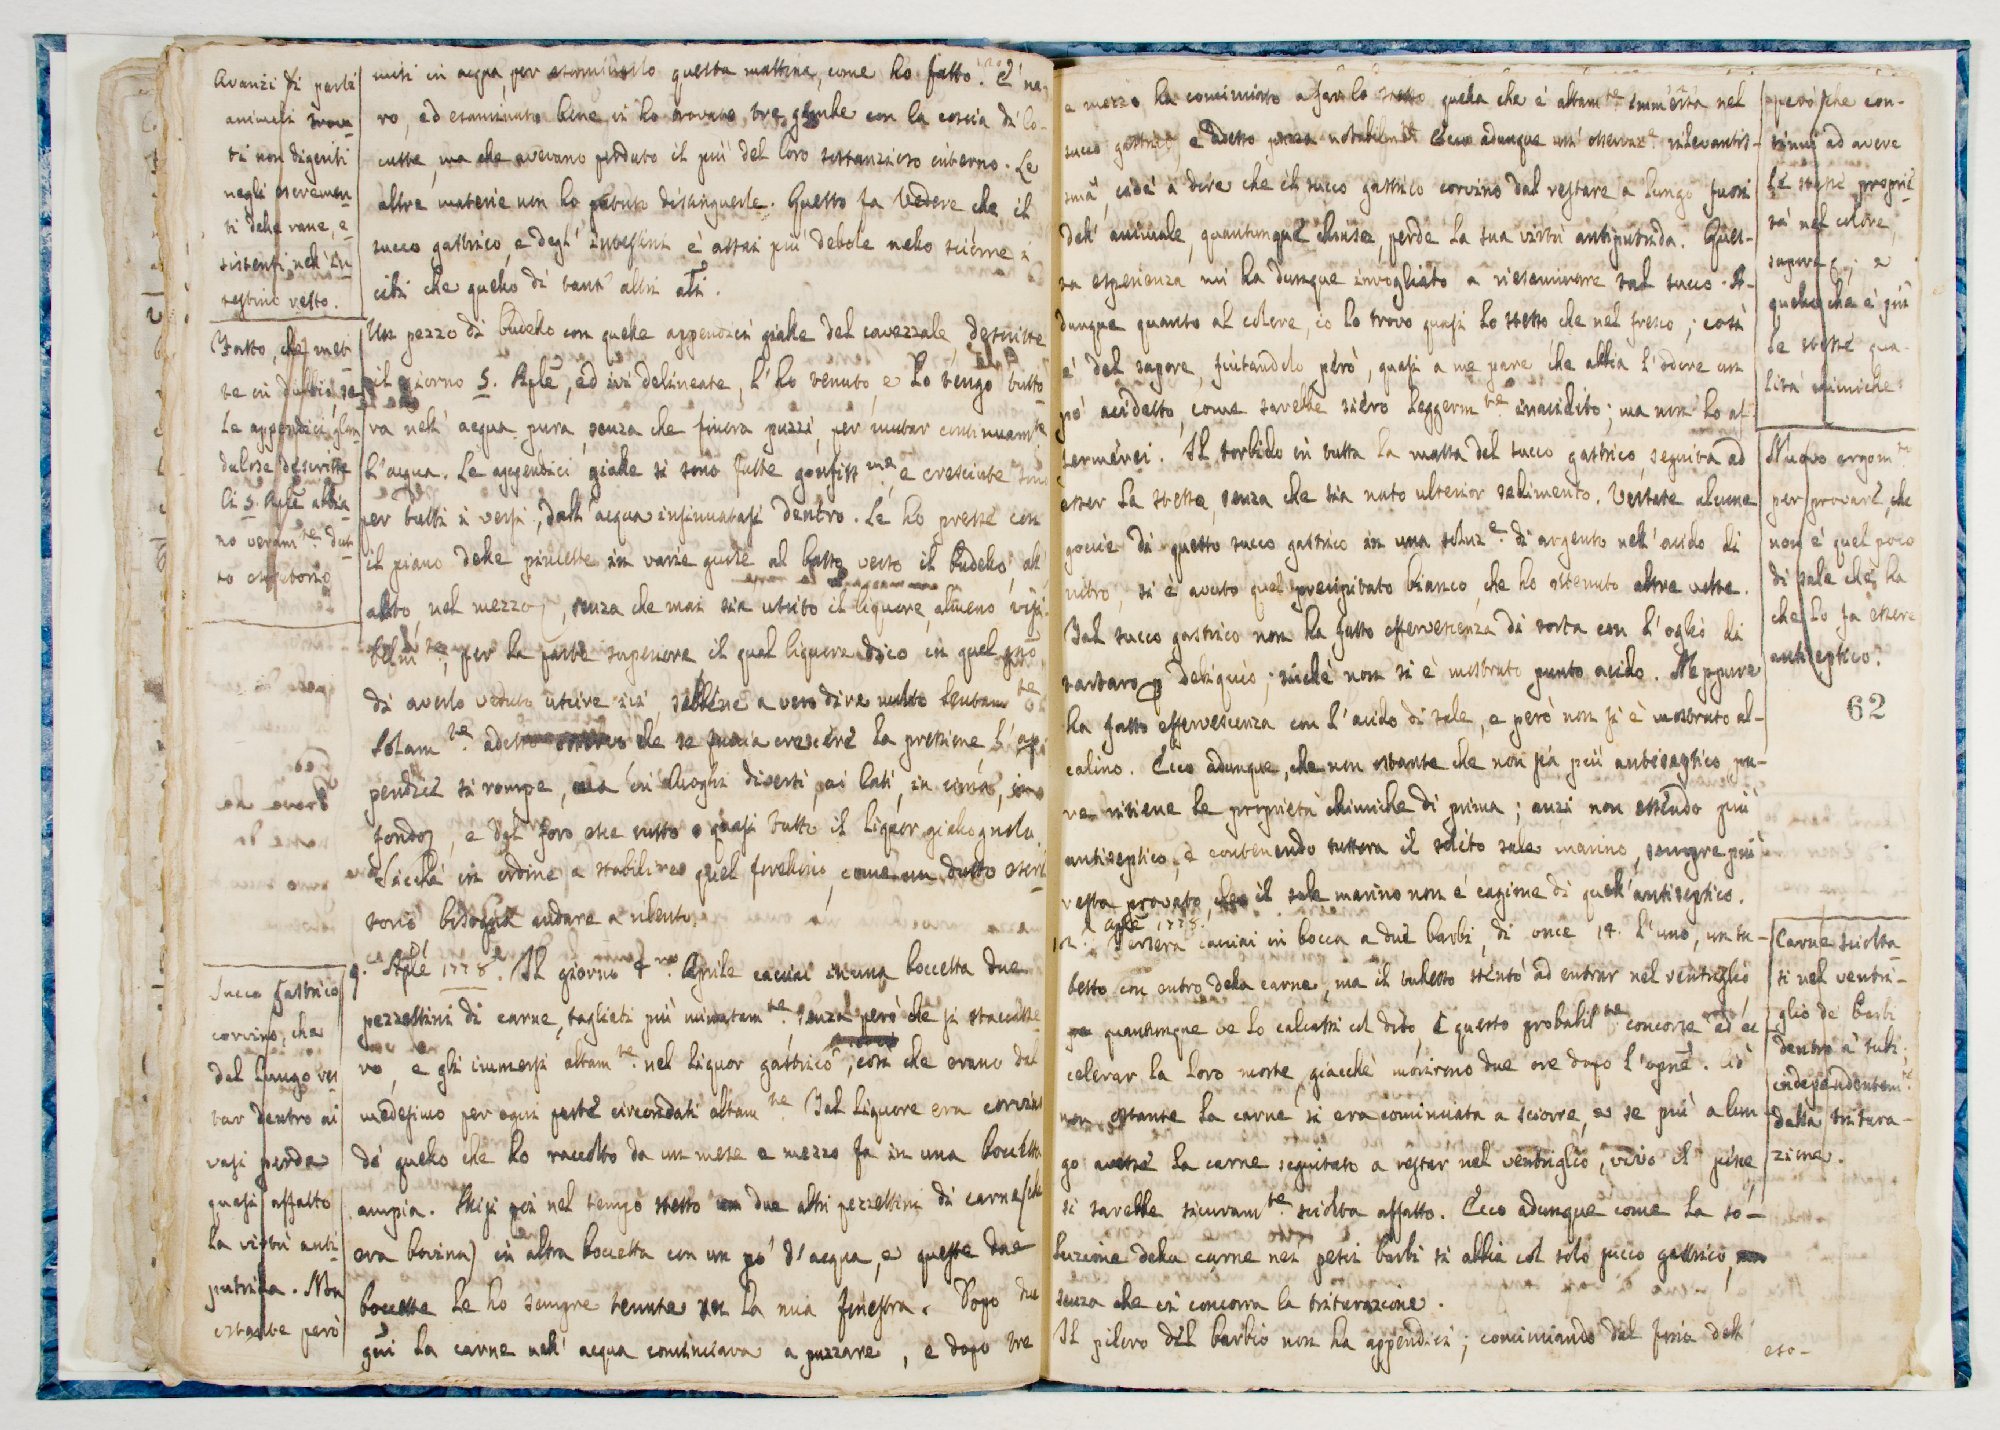 Avanzi di parti
animali trova-
ti non digeriti
negli escremen-
ti delle rane, e-
sistenti nell' in-
testino retto.
messi in acqua, per esaminarlo questa mattina, come ho fatto. È ne-
ro, ed esaminato bene ci ho trovato tre gambe con la coscia di lo-
custe, ma che avevano perduto il più del loro sostanzioso interno. Le
altre materie non ho potuto distinguerle. Questo fa vedere che il
succo gastrico, e degl' intestini è assai più debole nello sciorre i
cibi che quello di tant' altri
Fatto, che met-
te in dubbio, se
le appendici glan-
dulose descritte
li 5. Aple abbia-
no veram.te dut-
to escretorio
Un pezzo di budello con quelle appendici gialle del cavezzale, descritte
il giorno 5. Aple, ed ivi delineate, l' ho tenuto, e lo tengo tutto-
ra nell' acqua pura, senza che finora puzzi, per mutar continuam.te
l'acqua. Le appendici gialle si sono fatte gonfiss.me, e cresciute sono
per tutti i versi, dall' acqua insinuatasi dentro. Le ho presse con
il piano delle pinzette in varie guise al basso verso il budello, all'
alto, nel mezzo, senza che mai sia uscito il liquore, almeno visi-
bilm.te, per la parte superiore il qual liquore dico in quel gno
di averlo veduto uscire sebbene a vero dire molto lentam.te
Solam.te adesso che se faccia crescere la pressione, l' ap-
pendice si rompe, ma in luoghi diversi, ai lati, in cima, in
fondo, e dal foro esce tutto o quasi tutto il liquor giallognolo.
Sicché in ordine a stabilire quel forellino, come un dutto escre-
torio bisogna andare a rilento.
Succo gastrico
corvino, che
dal lungo res-
tar dentro ai
vasi perde
quasi affatto
la virtù anti-
putrida. Non
ostante però
9. Aple 1778. Il giorno 4 Aprile cacciai in una boccetta due
pezzettini di carne, tagliati più minutam.te senza però che si staccasse-
ro, e gli immersi altam.te nel liquor gastrico, così che erano dal
medesimo per ogni parte circondati altam.te Tal liquore era corvino
di quello che ho raccolto da un mese e mezzo fa in una boccetta
ampia. Misi poi nel tempo stesso due altri pezzettini di carne (che
era bovina) in altra boccetta con un po' d'acqua, e queste due
boccette le ho sempre tenute su la mia finestra. Dopo due
gni la carne nell' acqua cominciava a puzzare, e dopo tre
e mezzo ha cominciato a far lo stesso quella che è altam.te immersa nel
succo gastrico, e adesso puzza notabilm.te Ecco adunque un' osservaz.e rilevantis-
sima, cioè a dire che il succo gastrico corvino dal restare a lungo fuori
dell' animale, quantunque chiuso, perde la sua virtù antiputrida. Ques-
ta esperienza mi ha dunque invogliato a riesaminare tal succo. A-
dunque quanto al colore, io lo trovo quasi lo stesso che nel fresco; così
è del sapore, fiutandolo però, quasi a me pare che abbia l'odore un
po' acidetto, come sarebbe siero leggerm.te inacidito; ma non ho af-
fermerei. Il torbido in tutta la massa del succo gastrico, seguita ad
esser lo stesso, senza che sia nato ulterior sedimento. Versate alcune
goccie di questo succo gastrico in una soluz.e di argento nell' acido di
nitro, si è avuto quel precipitato bianco, che ho ottenuto altre volte.
Tal succo gastrico non ha fatto effervescenza di sorta con l'oglio di
tartaro p deliquio; sicchè non si è mostrato punto acido. Neppure
ha fatto effervescenza con l'acido di sale, e però non si è mostrato al-
calino. Ecco adunque, che non ostante che non sia più antiseptico pu-
re ritiene le proprietà chimiche di prima; anzi non essendo più
antiseptico, e contenendo tuttora il solito sale marino, sempre più
resta provato, che il sale marino non è cagione di quell' antiseptico.
però che con-
tinui ad avere
le stesse propri-
tà nel colore,
sapore &; e
quello che è più
le stesse qua-
lità chimiche
Nuovo argom.to
per provare, che
non è quel poco
di sale che ha
che lo fa essere
antiseptico.
62
Aple 1778.
Iersera cacciai in bocca a due barbi, di once 14. l'uno, un tu-
betto con entro della carne, ma il tubetto stentò ad entrar nel ventriglio
quantunque ve lo calcassi col dito, e questo probabil.te concorse ad ac-
celerar la loro morte, giacchè morirono due ore dopo l'opne. Ciò
non ostante la carne si era cominciata a sciorre, e se più a lun-
go avesse la carne seguitato a restar nel ventriglio, vivo il pesce
si sarebbe sicuram.te sciolta affatto. Ecco adunque come la so-
luzione della carne nei pesci barbi si abbia col solo succo gastrico,
senza che vi concorra la triturazione.
Il piloro del barbio non ha appendici; cominciando dal fine dell'
eso-
Carne sciolta-
si nel ventri-
glio de' barbi
dentro a' tubi,
independentem.te
dalla tritura-
zione.